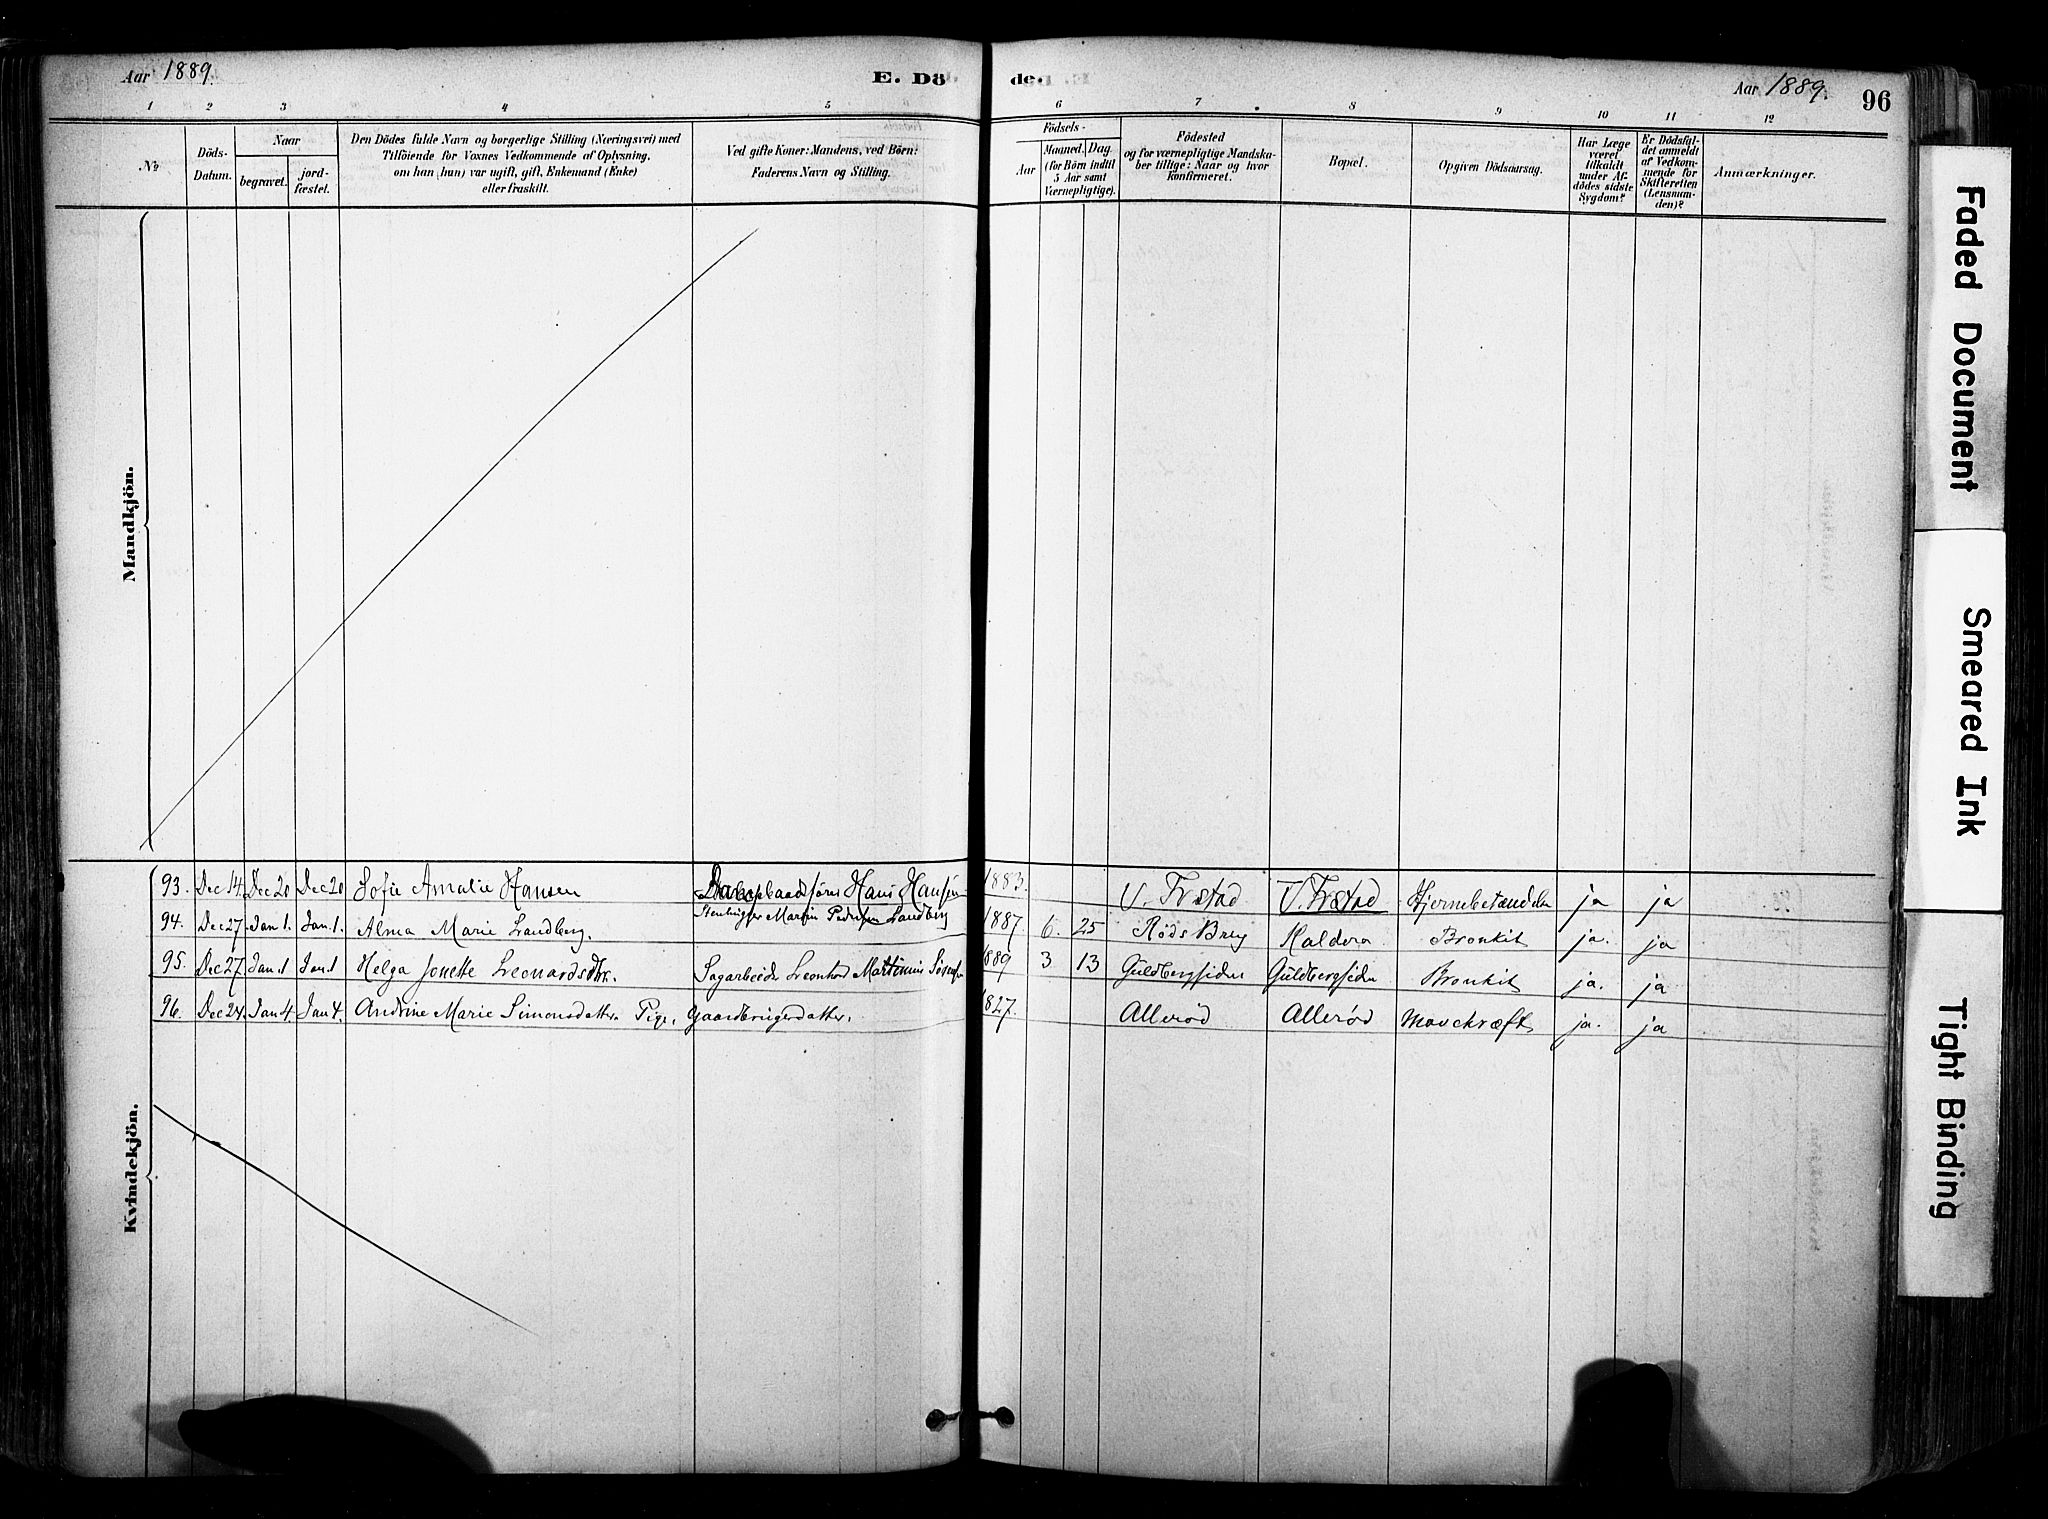 Aar 1889.
E. Döde.
Aar 1889.
96
1 2 3 4 5 6 7 8 9 10 11 12
No
Döds-Datum.
Naar
begravet.
jord-fæstet.
Den Dödes fulde Navn og borgerlige Stilling (Næringsvei) med
Tilföiende for Voxnes Vedkommende af Oplysning,
om han (hun) var ugift, gift, Enkemand (Enke)
eller fraskilt.
Ved gifte Koner: Mandens, ved Börn:
Faderens Navn og Stilling.
Födsels-
Aar
Maaned. Dag
(for Börn indtil
5 Aar samt
Værnepligtige).
Födested
og for værnepligtige Mandska-
ber tillige: Naar og hvor
konfirmeret.
Bopæl.
Opgiven Dödsaarsag.
Har Læge
været
tilkaldt
under Af-
dödes sidste
Sygdom?
Er Dödsfal-
det anmeldt
af Vedkom-
mende for
Skifteretten
(Lensman-
den)?
Anmærkninger.
Mandkjön.
Kvindekjön.
93. Dec 14. Dec 20 Dec 20 Sofie Amalie Hansen Hans Hansen 1883. V. Frstad V. Frstad ja ja
94. Dec 27. Jan 1. Jan. 1. Alma Marie Landberg. Stenhugger Martin Pedersen Landberg 1887. 6. 25 Røds Bryg Haldera Bronkit ja. ja
95. Dec 27 Jan. 1 Jan. 1 Helga Jonette Leonardsdtr. Sagarbeider Leonhard Martinius 1889 3 13 Guldbergsiden Guldbergsiden Bronkit ja. ja
96. Dec 24. Jan 4. Jan 4. Andrine Marie Simonsdatter Pige, Gaardbrugerdatter. 1827. Allerød Allerød Mavekræft ja. ja
Faded Document
Smeared Ink
Tight Binding